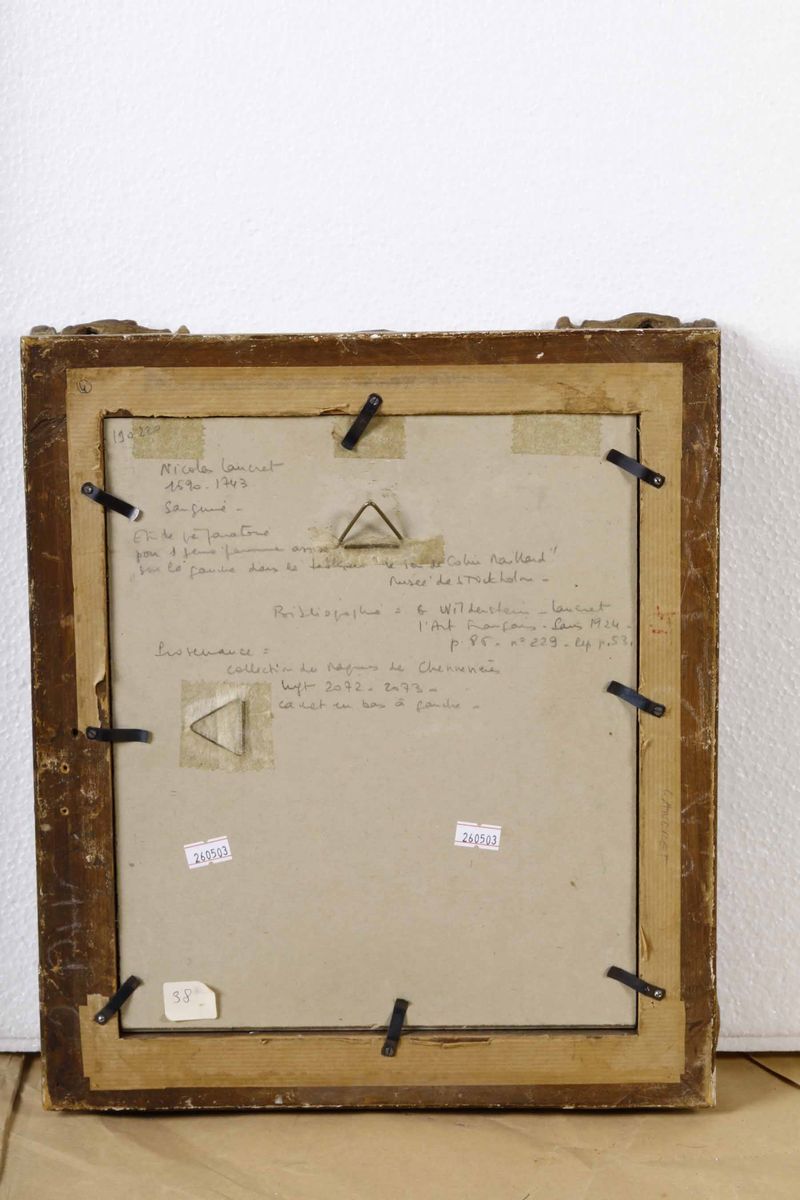 190220
Nicolas Lancret
1590-1743
Sanguine -
Etude préparatoire
pour 1 jeune femme assise
"sur la gauche dans le tableau "le jeu de Colin Maillard"
Musée de Stockholm -
Bibliographie = G Wildenstein - Lancret
l'Art Français - Paris 1924 -
p. 85 - n° 229 - rep p. 53.
Provenance =
collection du Marquis de Chennevières
Lugt 2072 - 2073 -
cachet en bas à gauche -
260503
260503
38
LANCRET